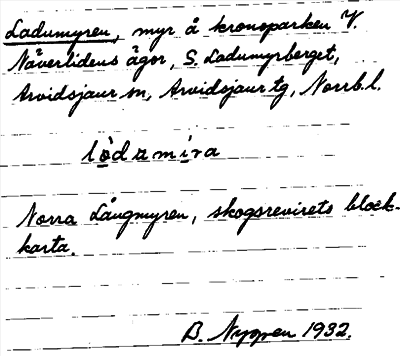 Ladumyren, myr å kronoparken V.
Näverlidens ägor, S. Ladumyrberget,
Arvidsjaur sn, Arvidsjaur tg, Norrb.l.
Norra Långmyren, skogsrevirets block-
karta.
B. Nygren 1932.